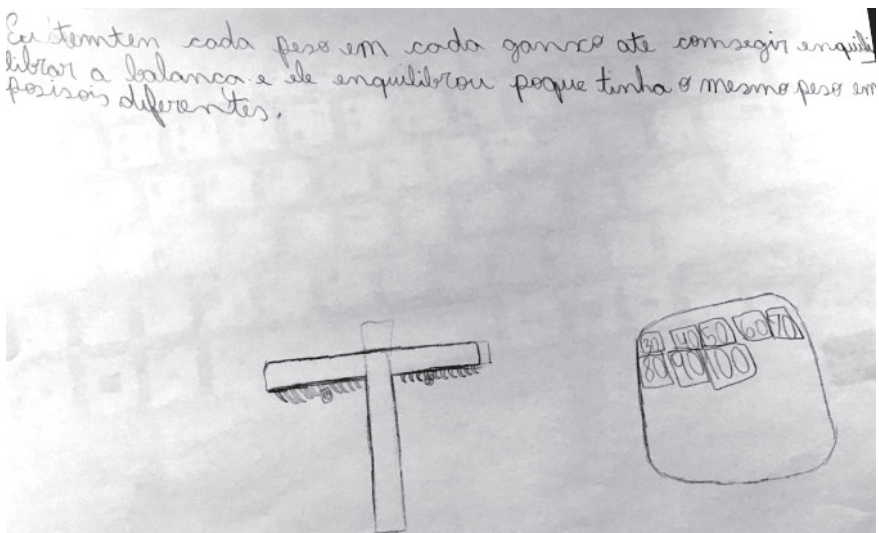 Eu temten cada peso em cada ganxo ate comsegir enquili
librar a balanca e ele enquilibrou poque tinha o mesmo peso em
posisois diferentes.
30 40 50 60 70
80 90 100